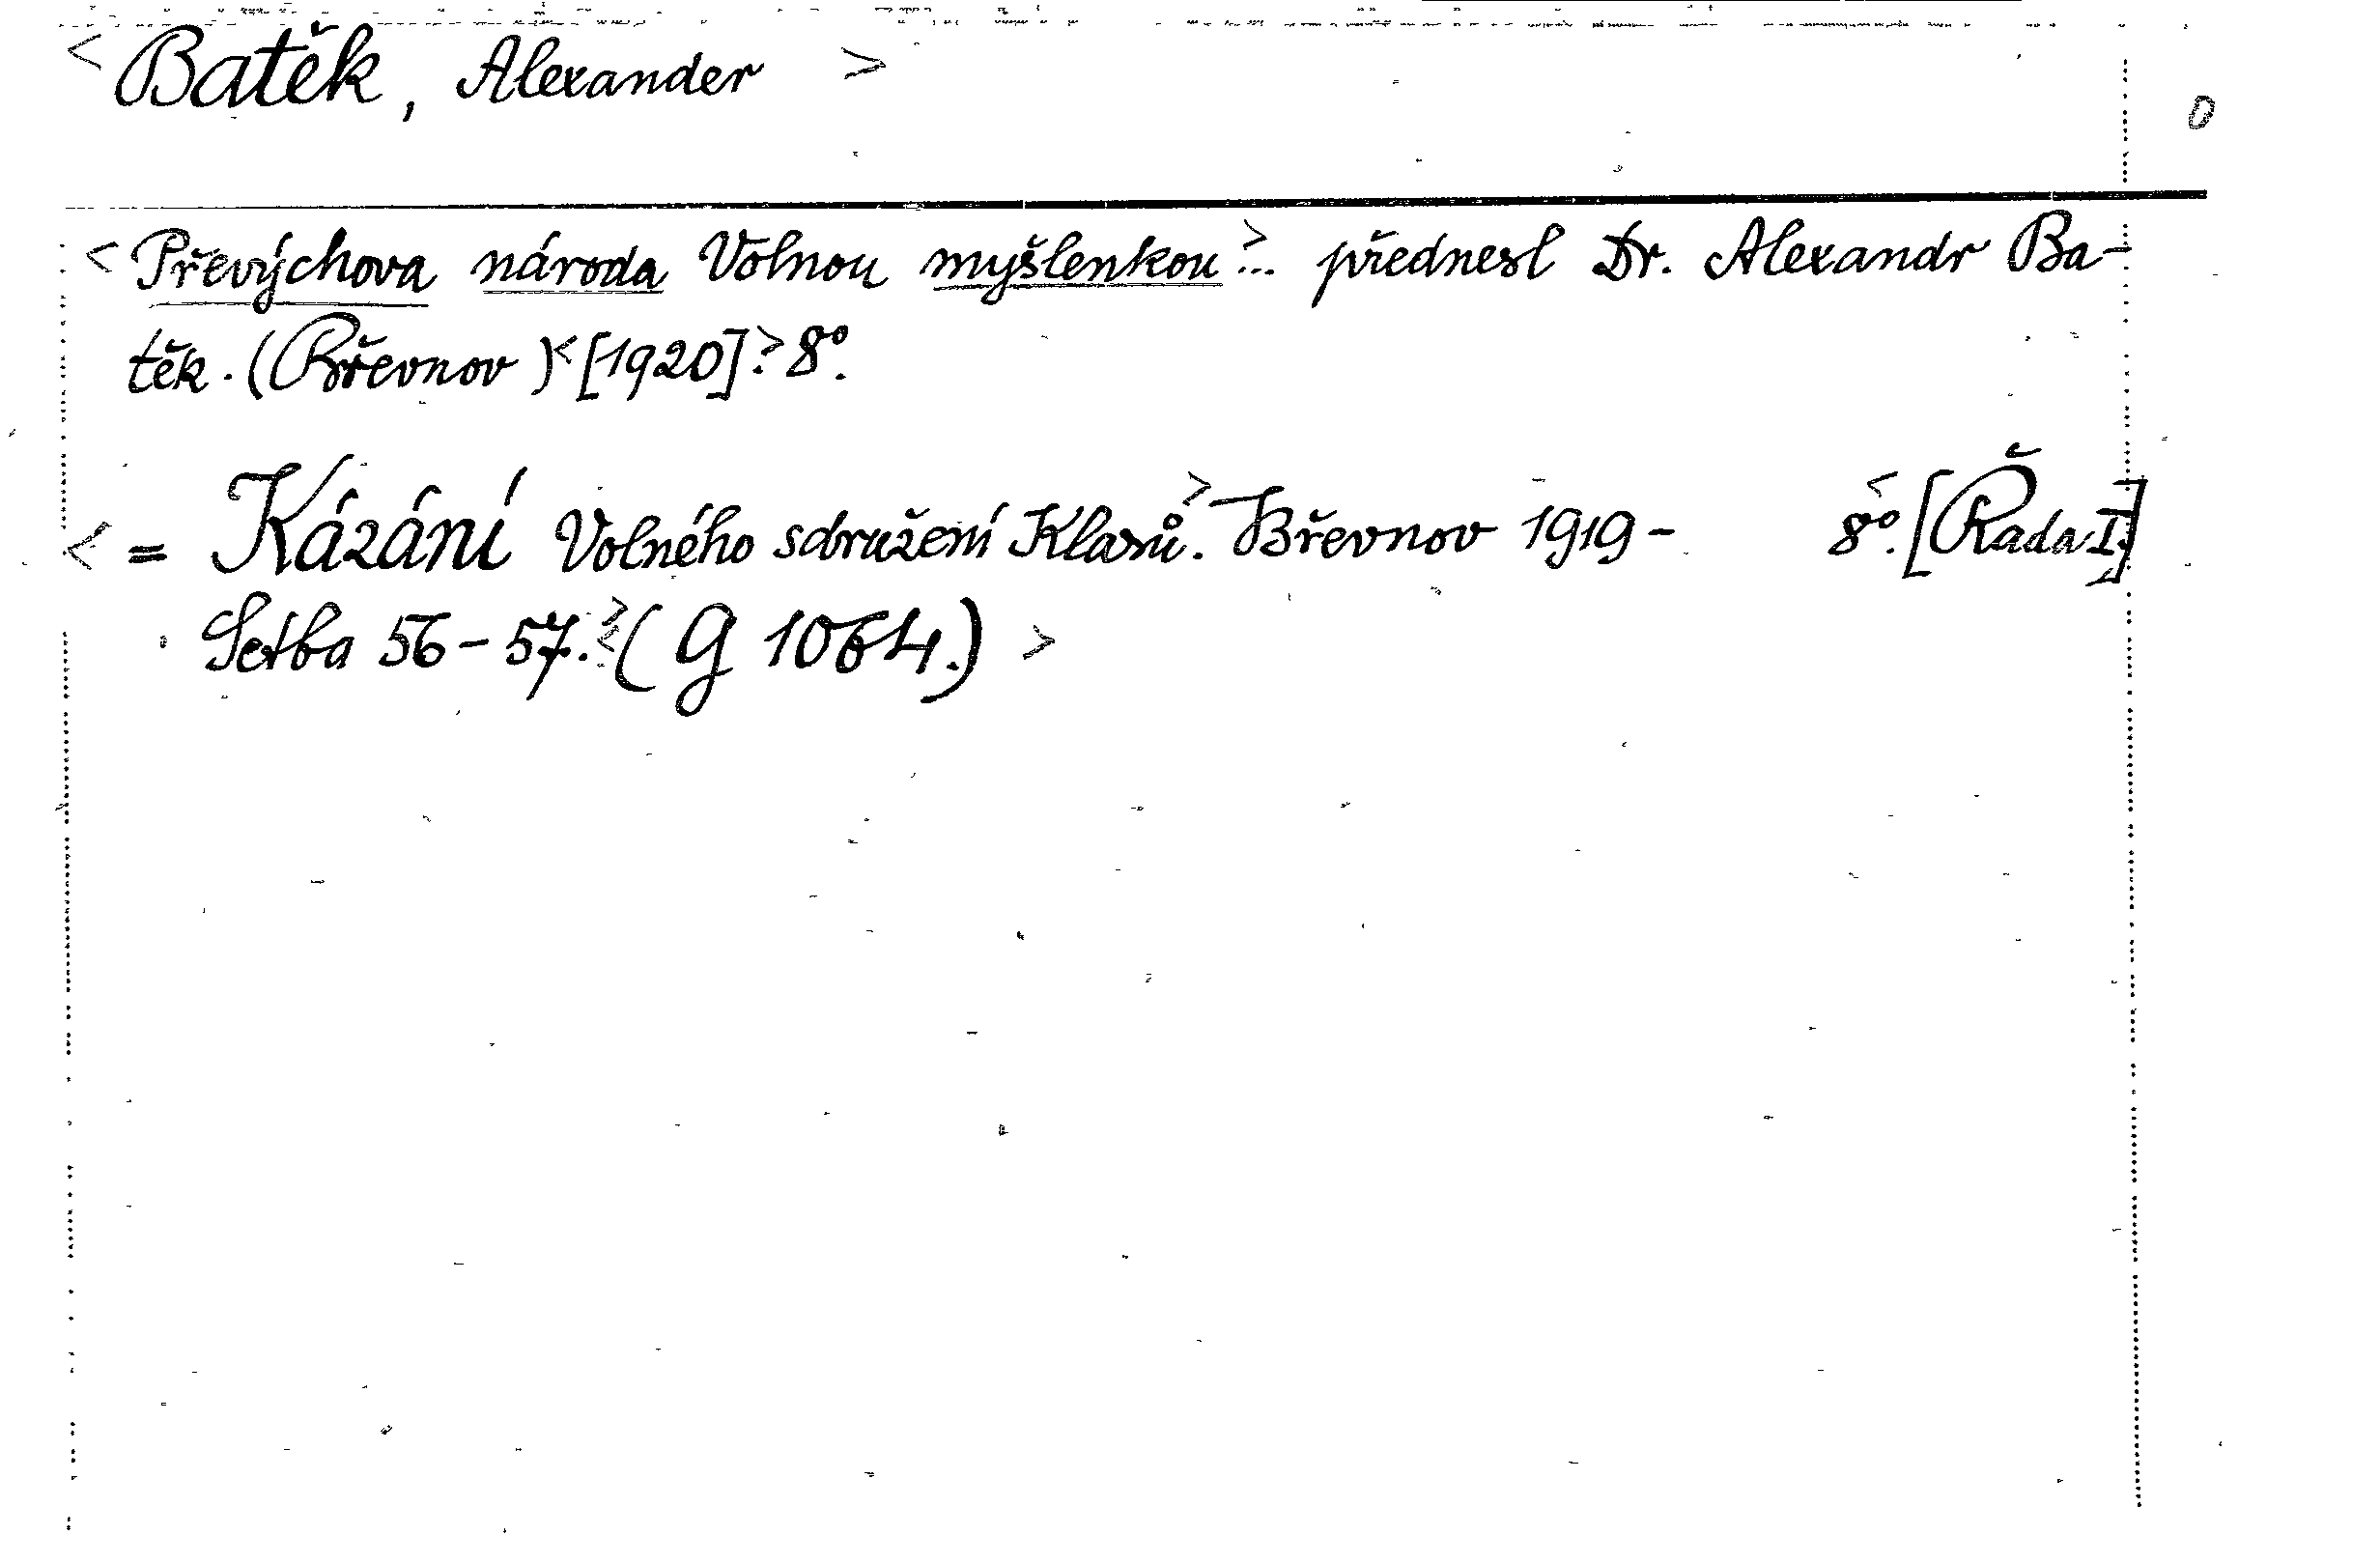 < Batěk, Alexander >
0
< Převýchova národa Volnou myšlenkou > ... přednesl Dr. Alexandr Ba-
těk. (Břevnov) < [1920] > . 8°.
< = Kázání Volného sdružení Klasů. > Břevnov 1919 - 8°. < [Řada I.]
Setba 56-57. > < (G 1064.) >